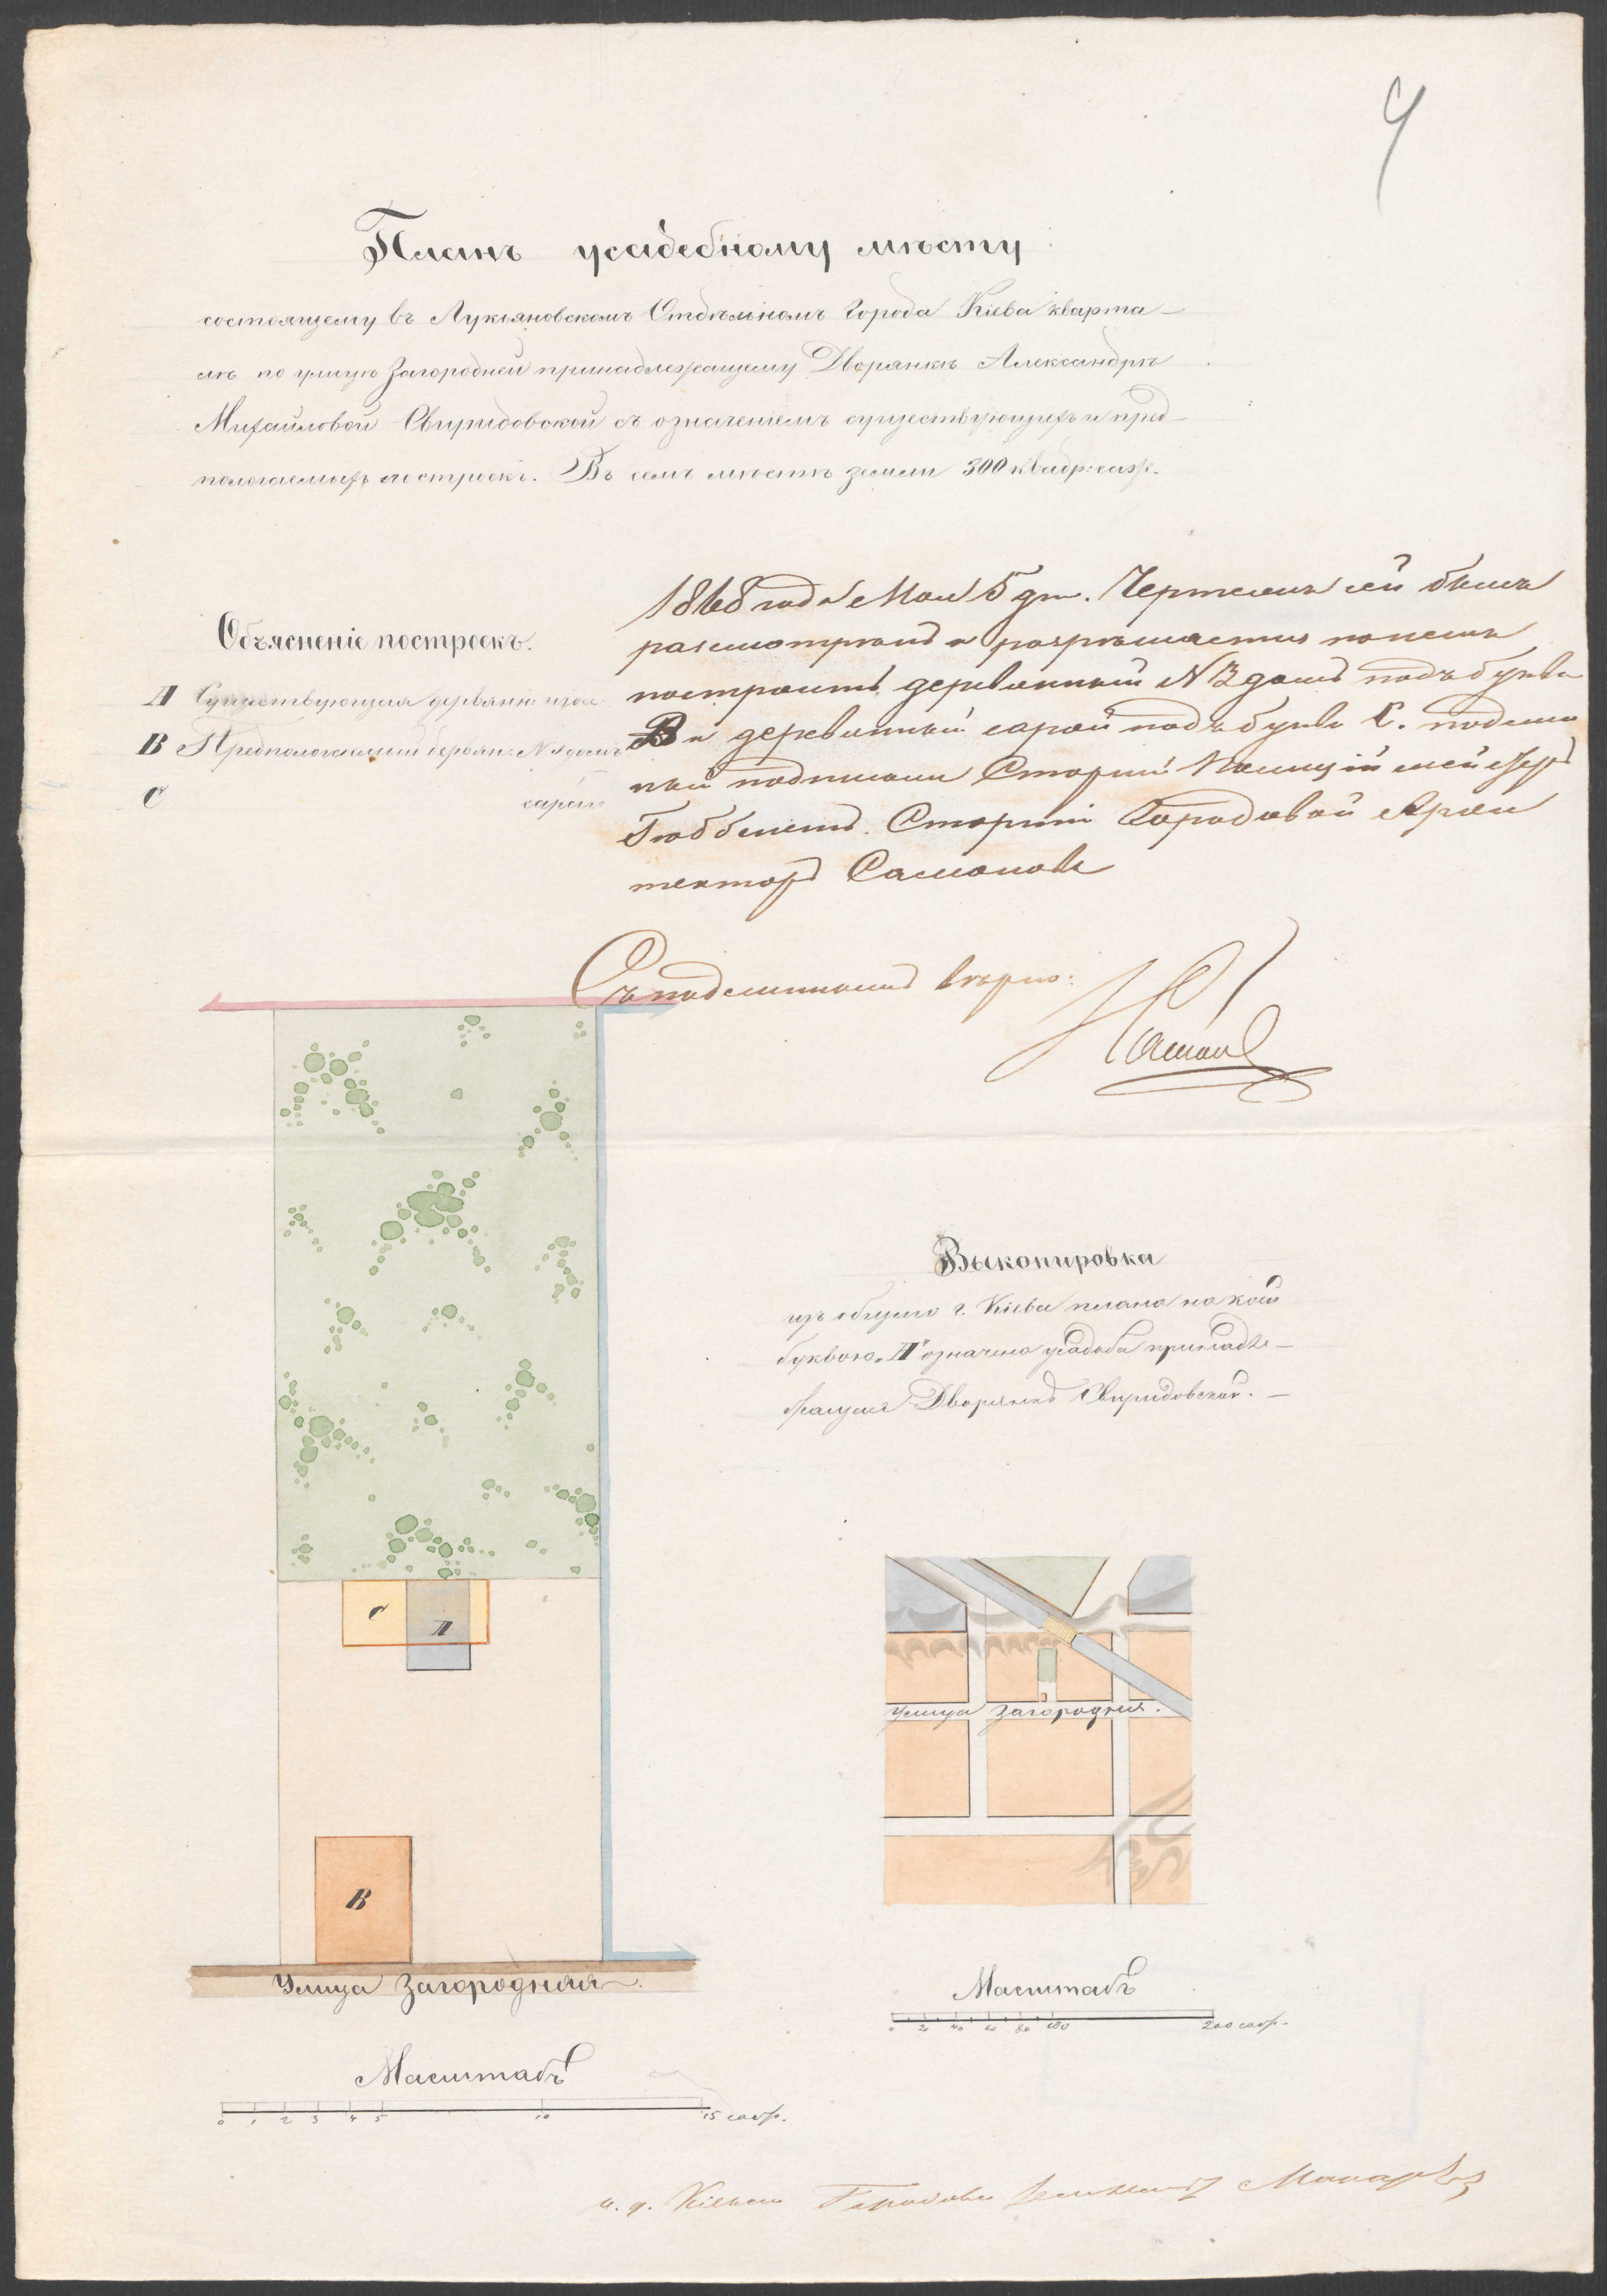 4
Планъ усадебному мѣсту
состоящему въ Лукьяновскомъ Отдѣльномъ города Кіева кварта-
лѣ по улицѣ Загородней принадлежащему Дворянкѣ Александрѣ
Михайловой Свиридовской съ означеніемъ существующихъ и пред-
полагаемыхъ построекъ. Въ семъ мѣстѣ земли 300 квадр: саж.
Объясненіе построекъ.
А Существующая деревян:
В Предполагаемый деревян: № домъ
С сарай
1868 года Мая 5 дня. Чертежъ сей былъ
разсмотренъ и разрѣшается по немъ
построить деревянный № 3 домъ подъ буквою
В и деревянный сарай подъ буквою С. подлин
ный подписали Старшій Полиціймейстеръ
Гюббенетъ. Старшій Городовой Архи
текторъ
Съ подлиннымъ вѣрно:
Выкопировка
изъ общаго г. Кіева плана на коей
буквою „А" означена усадьба принадле-
жащая Дворянкѣ Свиридовской. -
С
А
В
Улица Загородняя.
Улица Загородняя.
Масштабъ
0 20 40 60 80 100 200 саж.
Масштабъ
0 1 2 3 4 5 10 15 саж.
и. д. Кіевск Городова